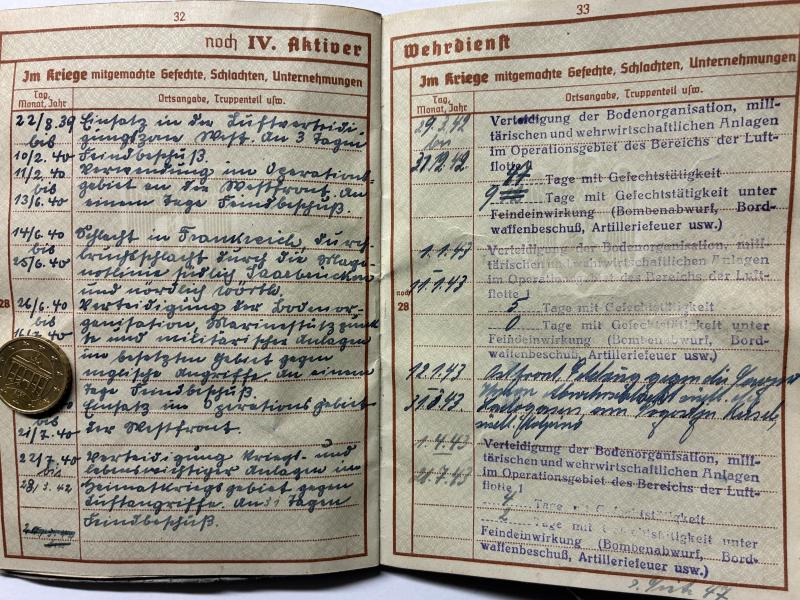 32
noch IV. Aktiver
Im Kriege mitgemachte Gefechte, Schlachten, Unternehmungen
Tag, Monat, Jahr
Ortsangabe, Truppenteil usw.
22/8.39 Einsatz in der Luftverteidi-
bis gungszone West. An 3 Tagen
10/2.40 Feindbeschuß.
11/2.40 Verwendung im Operations-
bis gebiet an der Westfront. An
13/6.40 einem Tage Feindbeschuß.
14/6.40 Schlacht in Frankreich, durch-
bis bruchschlacht durch die Magi-
25/6.40 notlinie südlich Saarbrücken
und nördlich Wörth.
28
26/6.40 Verteidigung der Bodenor-
bis ganisation, Marinestützpunk-
te und militärischer Anlagen
im besetzten Gebiet gegen
englische Angriffe. An einem
Tage Feindbeschuß.
Einsatz im Operationsgebiet
bis
21/7.40 der Westfront.
22/7.40 Verteidigung kriegs- und
bis lebenswichtiger Anlagen im
28/3.42 Heimatkriegsgebiet gegen
Luftangriffe. An 31 Tagen
Feindbeschuß.
33
Wehrdienst
Im Kriege mitgemachte Gefechte, Schlachten, Unternehmungen
Tag, Monat, Jahr
Ortsangabe, Truppenteil usw.
29.3.42 Verteidigung der Bodenorganisation, mili-
bis tärischen und wehrwirtschaftlichen Anlagen
im Operationsgebiet des Bereichs der Luft-
31.12.42 flotte
44 Tage mit Gefechtstätigkeit
9 Tage mit Gefechtstätigkeit unter
Feindeinwirkung (Bombenabwurf, Bord-
waffenbeschuß, Artilleriefeuer usw.)
1.1.43 Verteidigung der Bodenorganisation, mili-
tärischen und wehrwirtschaftlichen Anlagen
im Operationsgebiet des Bereichs der Luft-
noch 28
11.1.43 flotte
5 Tage mit Gefechtstätigkeit
0 Tage mit Gefechtstätigkeit unter
Feindeinwirkung (Bombenabwurf, Bord-
waffenbeschuß, Artilleriefeuer usw.)
12.1.43 Ostfront, gegen die
31.3.43
1.4.43 Verteidigung der Bodenorganisation, mili-
tärischen und wehrwirtschaftlichen Anlagen
im Operationsgebiet des Bereichs der Luft-
28.7.43 flotte 1
4 Tage mit Gefechtstätigkeit
2 Tage mit Gefechtstätigkeit unter
Feindeinwirkung (Bombenabwurf, Bord-
waffenbeschuß, Artilleriefeuer usw.)